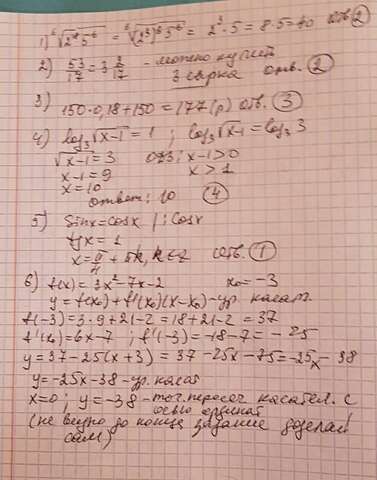 1) ⁶√(2¹⁸5⁶) = ⁶√((2³)⁶5⁶) = 2³·5 = 8·5=40 отв. ②
2) 53/17 = 3 2/17 - можно купить
3 сырка отв. ②
3) 150·0,18+150=177(р) отв. ③
4) log₃√(x-1) = 1 ; log₃√(x-1) = log₃3
√(x-1) = 3 одз: x-1>0
x-1=9 x>1
x=10
ответ: 10 ④
5) sinx=cosx |:cosx
tgx=1
x=π/4+πk, k∈z отв. ①
6) f(x) = 3x²-7x-2 x₀=-3
y=f(x₀)+f'(x₀)(x-x₀)-ур. касат.
f(-3)=3·9+21-2=18+21-2=37
f'(x₀)=6x-7 ; f'(-3)=-18-7=-25
y=37-25(x+3)=37-25x-75=-25x-38
y=-25x-38-ур. касат
x=0 ; y=-38-точ. пересеч касател. с
осью ординат
(не видно до конца задание доделай
сам)